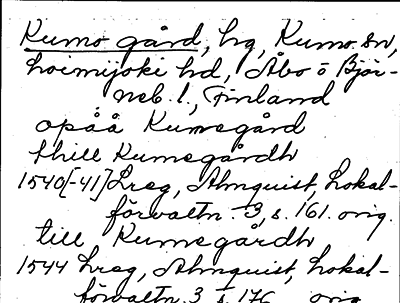 Kumo gård, hg, Kumo sn,
Loimijoki hd, Åbo o Björ-
neb. l., Finland
opåå Kumegård
thill Kumegårdh
1540[-41] Lreg, Almquist, Lokal-
förvaltn. 3, s. 161. orig.
till Kumegårdh
1544 Lreg, Almquist, Lokal-
förvaltn. 3 s. 176 orig